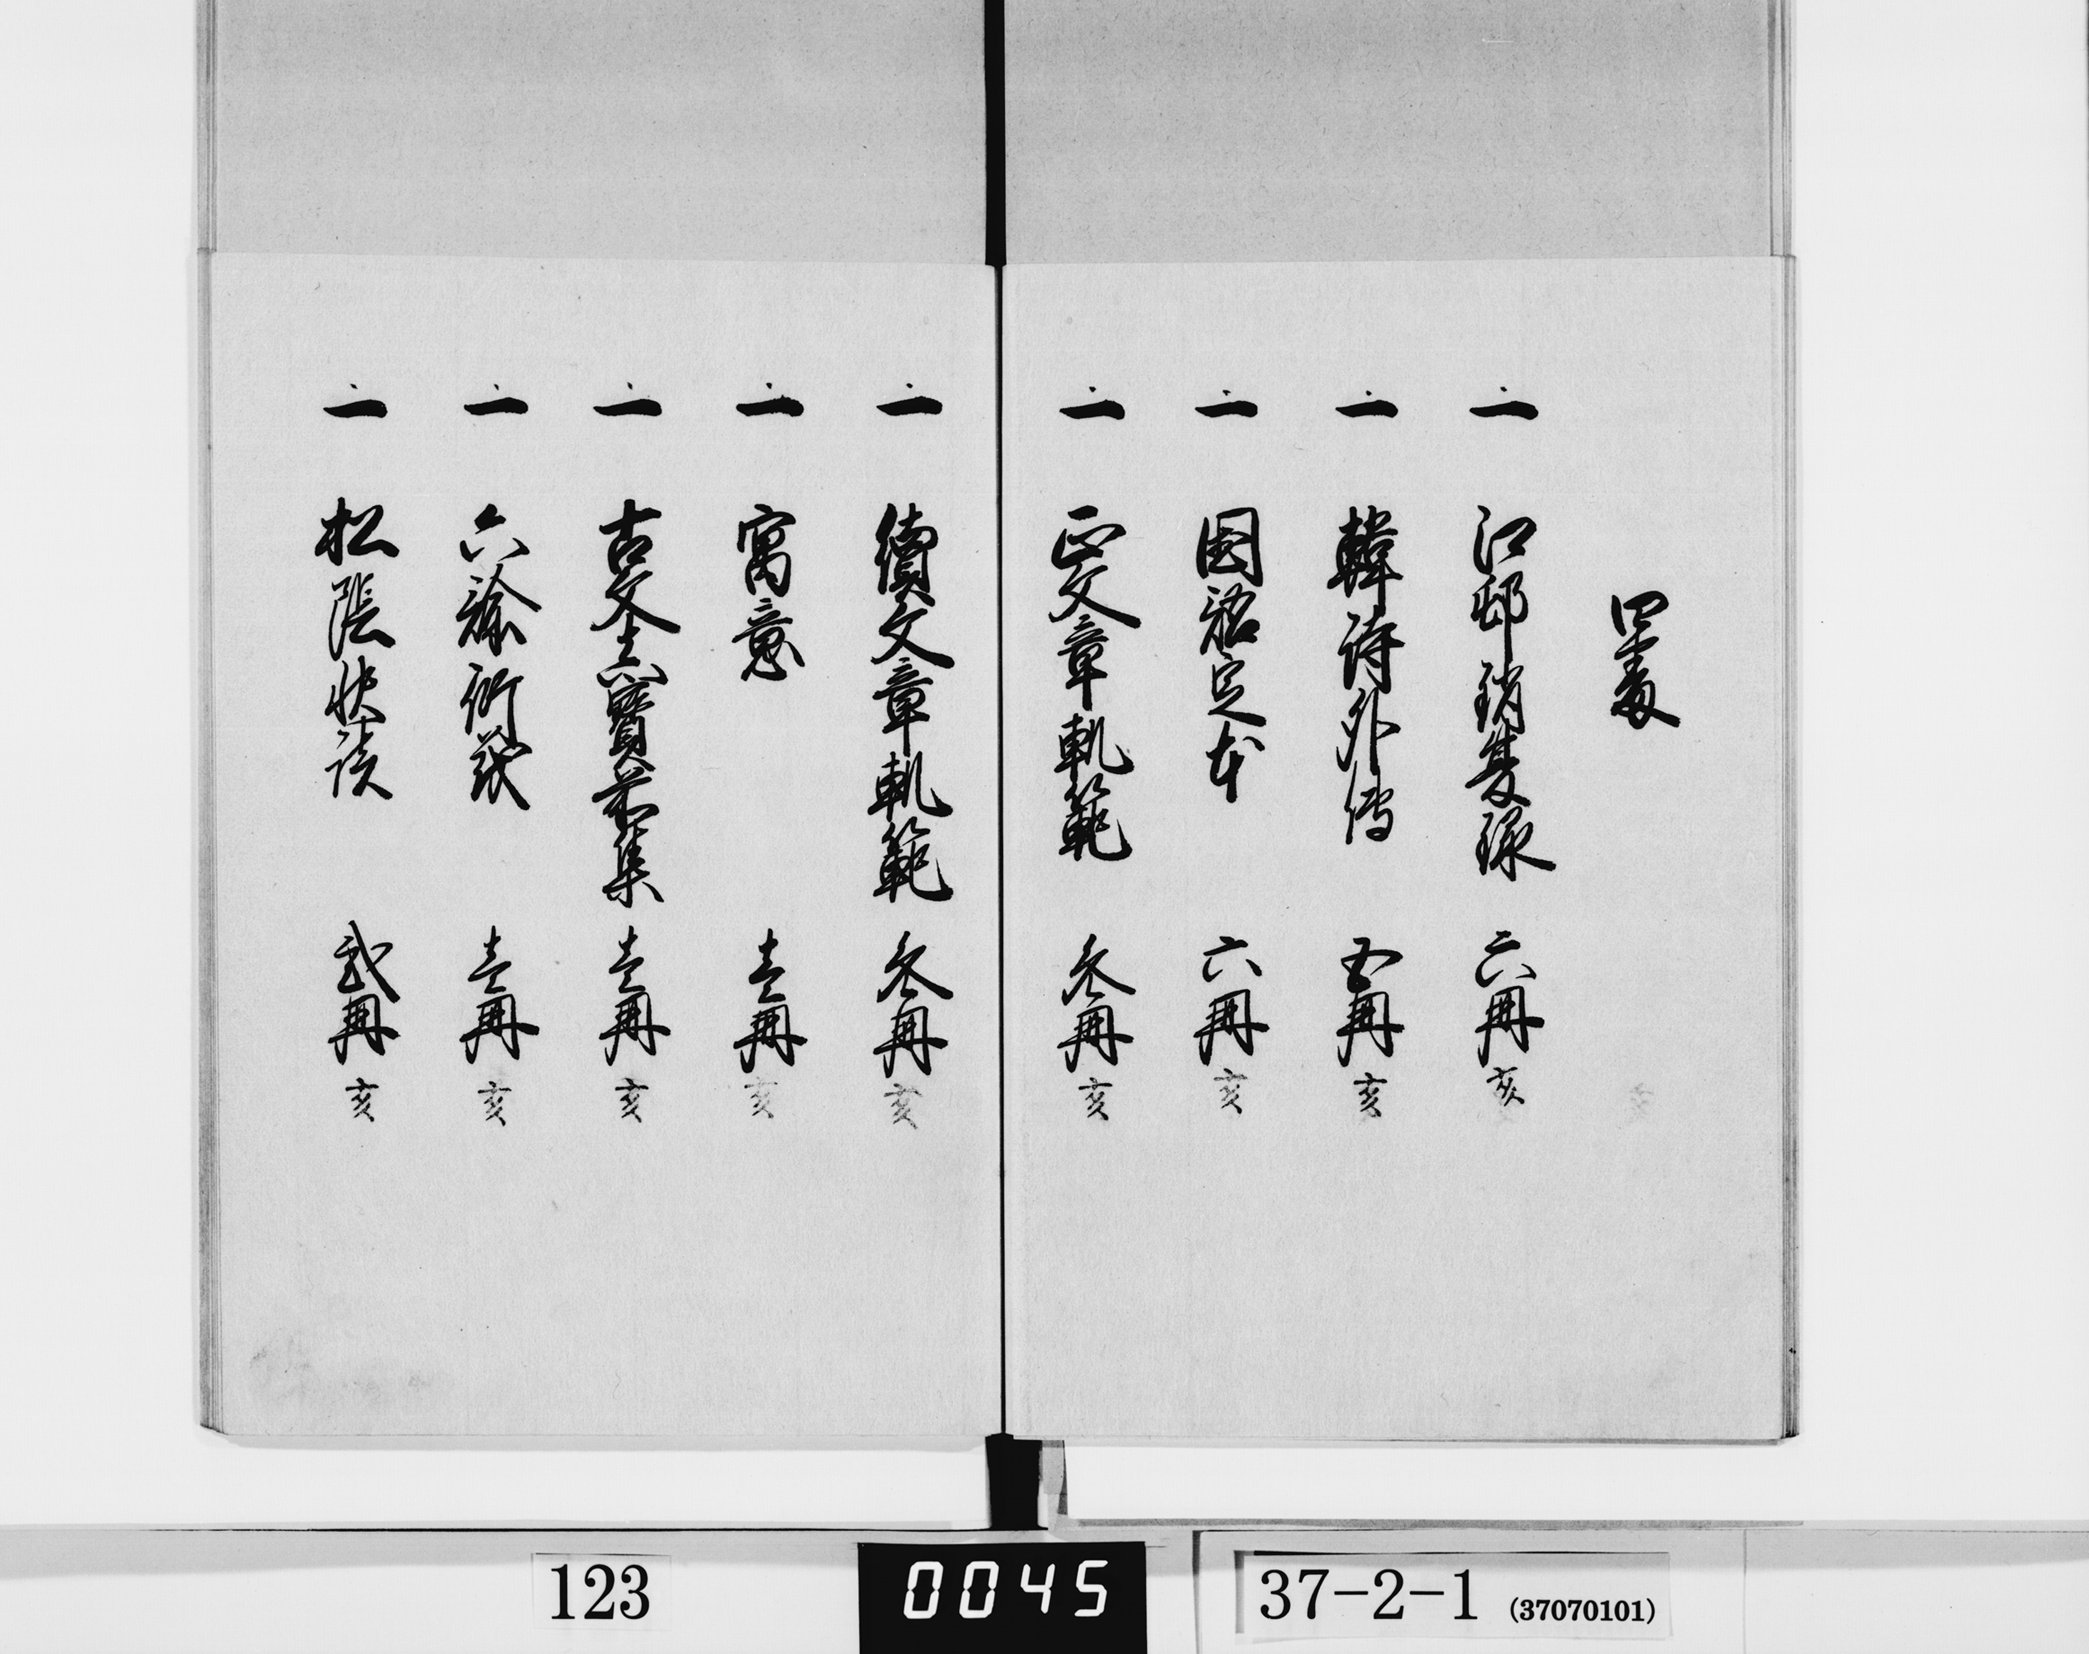 一 江邨銷夏録 六冊 亥
一 韓詩外傳 五冊 亥
一 国語定本 六冊 亥
一 正文章軌範 参冊 亥
一 續文章軌範 参冊 亥
一 寓意 壱冊 亥
一 古文真寶前集 壱冊 亥
一 六諭衍義 壱冊 亥
一 松陰快談 弐冊 亥
123
0045
37-2-1 (37070101)